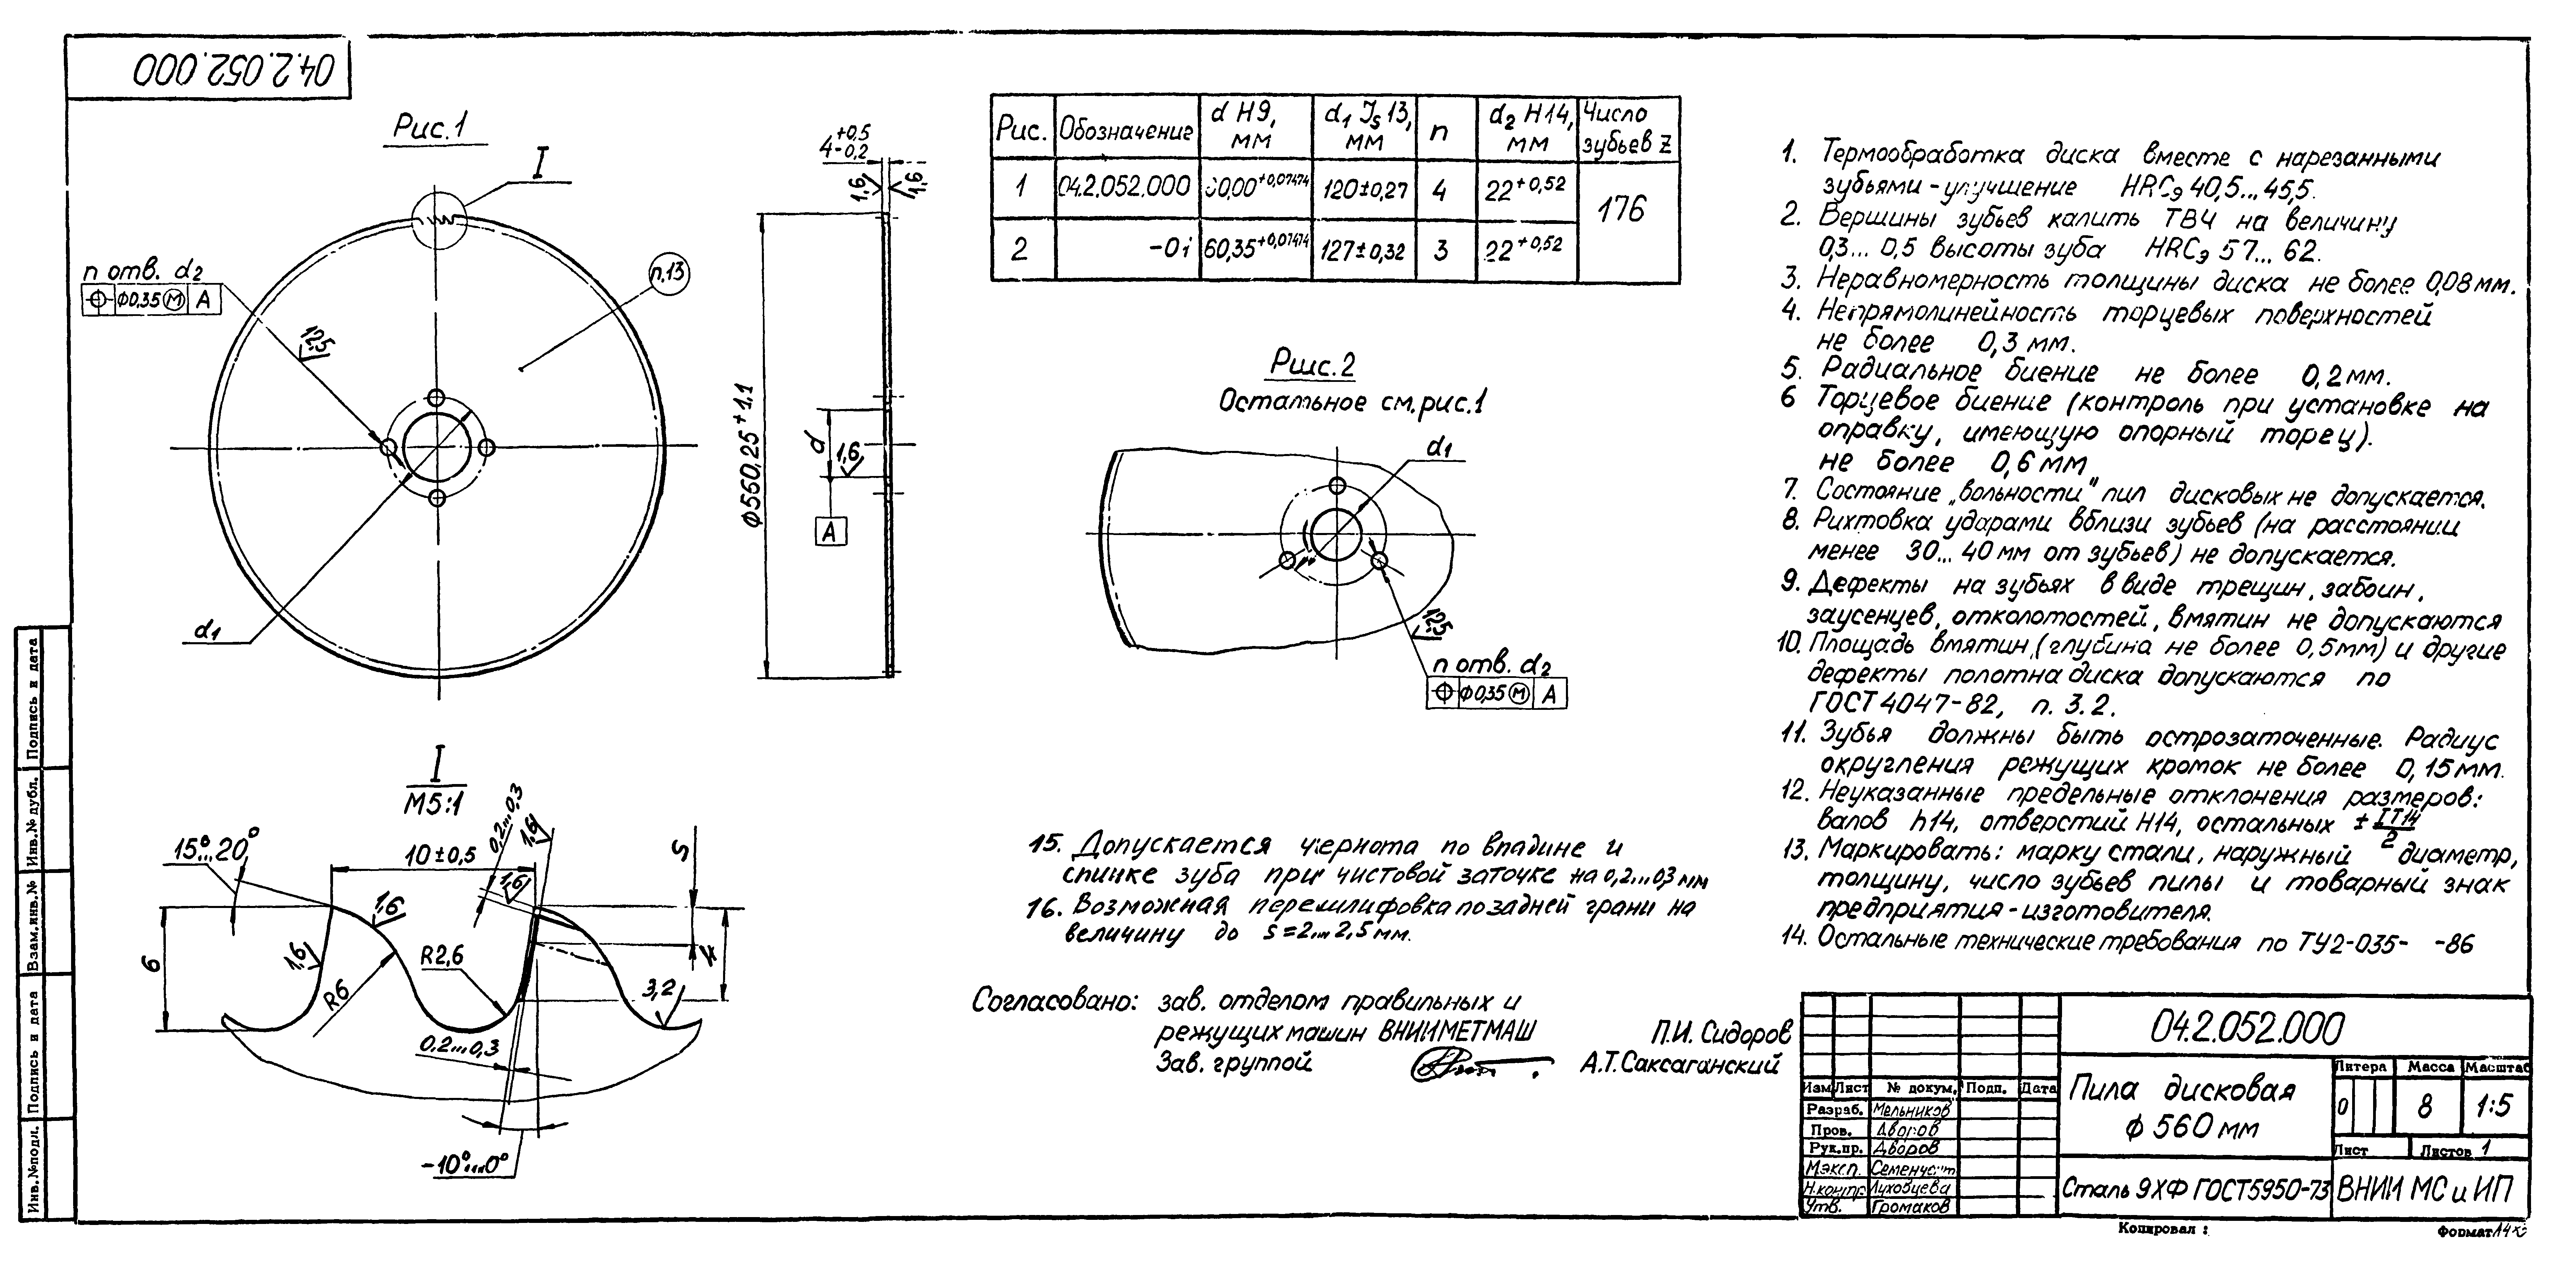 04.2.052.000
Рис.1
I
n отв. d2
⌖ ϕ0,35 Ⓜ A
12,5
п.13
d1
4 +0,5 -0,2
1,6
1,6
ϕ560,25 +1,1
d
1,6
A
Рис. Обозначение d H9, мм d1 Js 13, мм n d2 H14, мм Число зубьев Z
1 04.2.052.000 0,00+0,07474 120±0,27 4 22+0,52 176
2 -01 60,35+0,07474 127±0,32 3 22+0,52
Рис.2
Остальное см. рис.1
d1
12,5
n отв. d2
⌖ ϕ0,35 Ⓜ A
I
М5:1
15°...20°
10±0,5
0,2...0,3
1,6
1,6
S
1,6
1,6
6
R6
R2,6
3,2
0,2...0,3
-10°...0°
1. Термообработка диска вместе с нарезанными
зубьями - улучшение HRCэ 40,5...45,5.
2. Вершины зубьев калить ТВЧ на величину
0,3... 0,5 высоты зуба HRCэ 57... 62.
3. Неравномерность толщины диска не более 0,08 мм.
4. Непрямолинейность торцевых поверхностей
не более 0,3 мм.
5. Радиальное биение не более 0,2 мм.
6 Торцевое биение (контроль при установке на
оправку, имеющую опорный торец).
не более 0,6 мм
7. Состояние „вольности" пил дисковых не допускается.
8. Рихтовка ударами вблизи зубьев (на расстоянии
менее 30... 40 мм от зубьев) не допускается.
9. Дефекты на зубьях в виде трещин, забоин,
заусенцев, отколотостей, вмятин не допускаются
10. Площадь вмятин (глубина не более 0,5 мм) и другие
дефекты полотна диска допускаются по
ГОСТ 4047-82, п. 3.2.
11. Зубья должны быть острозаточенные. Радиус
округления режущих кромок не более 0,15 мм.
12. Неуказанные предельные отклонения размеров:
валов h14, отверстий H14, остальных ± IT14/2
13. Маркировать: марку стали, наружный диаметр,
толщину, число зубьев пилы и товарный знак
предприятия - изготовителя.
14. Остальные технические требования по ТУ2-035- -86
15. Допускается чернота по впадине и
спинке зуба при чистовой заточке на 0,2...0,3 мм
16. Возможная перешлифовка по задней грани на
величину до s=2...2,5 мм.
Согласовано: зав. отделом правильных и
режущих машин ВНИИМЕТМАШ П.И. Сидоров
Зав. группой А.Т.Саксаганский
Подпись и дата
Инв.№ дубл.
Взам.инв.№
Подпись и дата
Инв.№ подл.
04.2.052.000
Изм Лист № докум. Подп. Дата
Разраб. Мельников
Пров. Дворов
Рук.пр. Дворов
Н.контр Луховцева
Утв. Громаков
Пила дисковая
ϕ 560 мм
Литера Масса Масштаб
0 8 1:5
Лист Листов 1
Сталь 9ХФ ГОСТ5950-73
ВНИИ МС и ИП
Копировал :
Формат